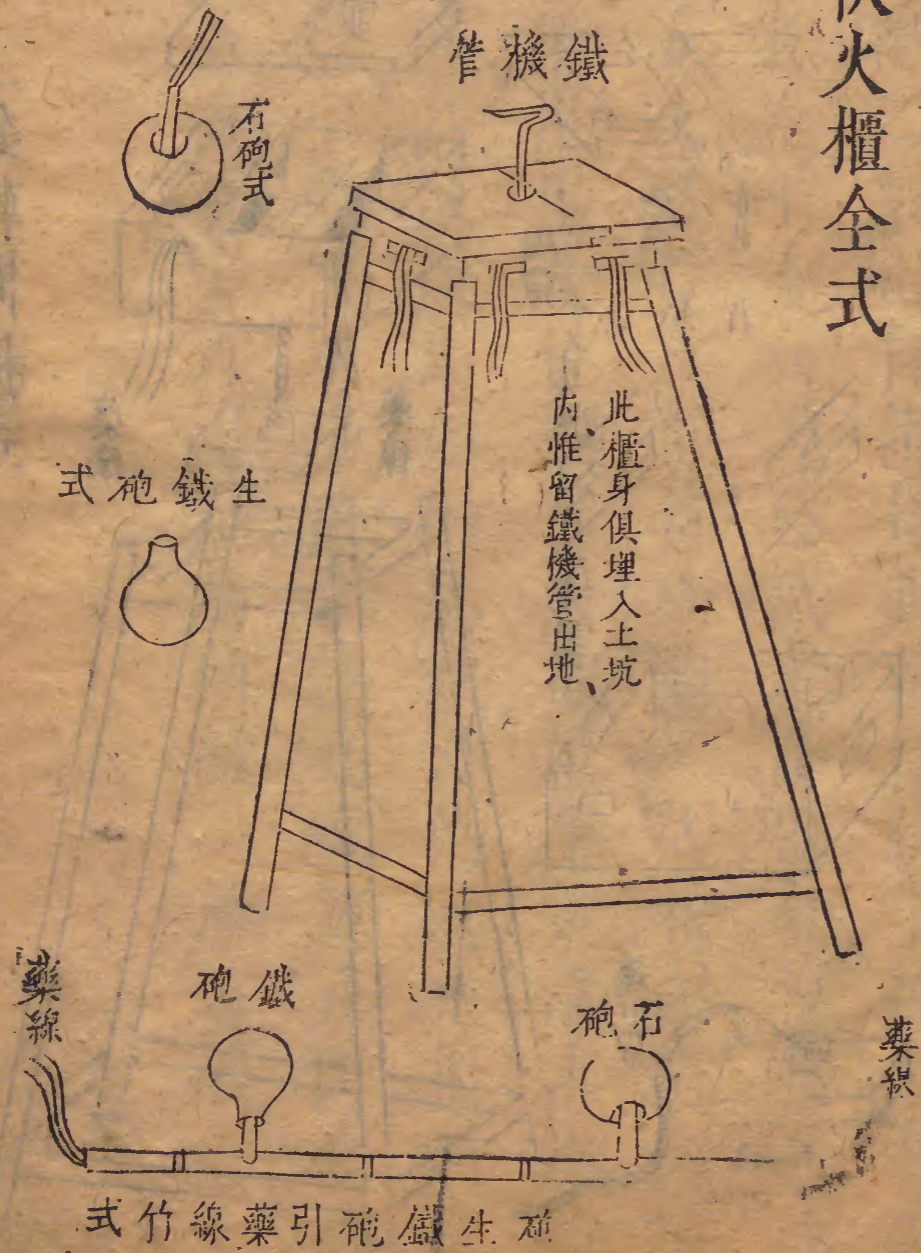 伏火櫃全式
鐵機管
石砲式
此櫃身俱埋入土坑
內、惟留鐵機管出地、
生鐵砲式
石砲
鐵砲
藥線
藥線
生鐵砲引藥線竹式